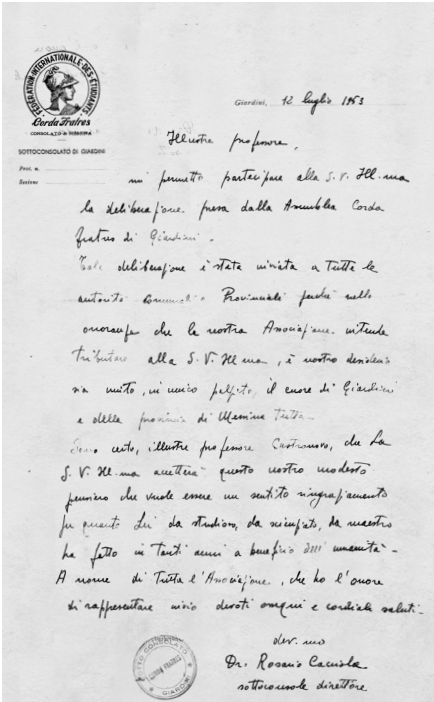 FÉDÉRATION·INTERNATIONALE·DES·ÉTUDIANTS
Corda Fratres
CONSOLATO di MESSINA
SOTTOCONSOLATO DI GIARDINI
Prot. n.
Sezione
Giardini, 12 luglio 1953
Illustre professore,
mi permetto partecipare alla S.V. Ill.ma
la deliberazione presa dalla Assemblea Corda
fratres di Giardini.
Tale deliberazione è stata inviata a tutte le
autorità Comunali e Provinciali perché nelle
onoranze che la nostra Associazione intende
tributare alla S.V. Ill.ma, è nostro desiderio
sia unito, in unico palpito, il cuore di Giardini
e della provincia di Messina tutta.
Sono certo, illustre professore Castronovo, che La
S.V. Ill.ma accetterà questo nostro modesto
pensiero che vuole essere un sentito ringraziamento
per quanto Lei da studioso, da scienziato, da maestro
ha fatto in tanti anni a beneficio dell'umanità -
A nome di tutta l'Associazione, che ho l'onore
di rappresentare invio devoti ossequi e cordiali saluti.
dev.mo
Dr. Rosario Cacciola
sottoconsole direttore
SOTTO CONSOLATO
CORDA FRATRES
GIARDINI